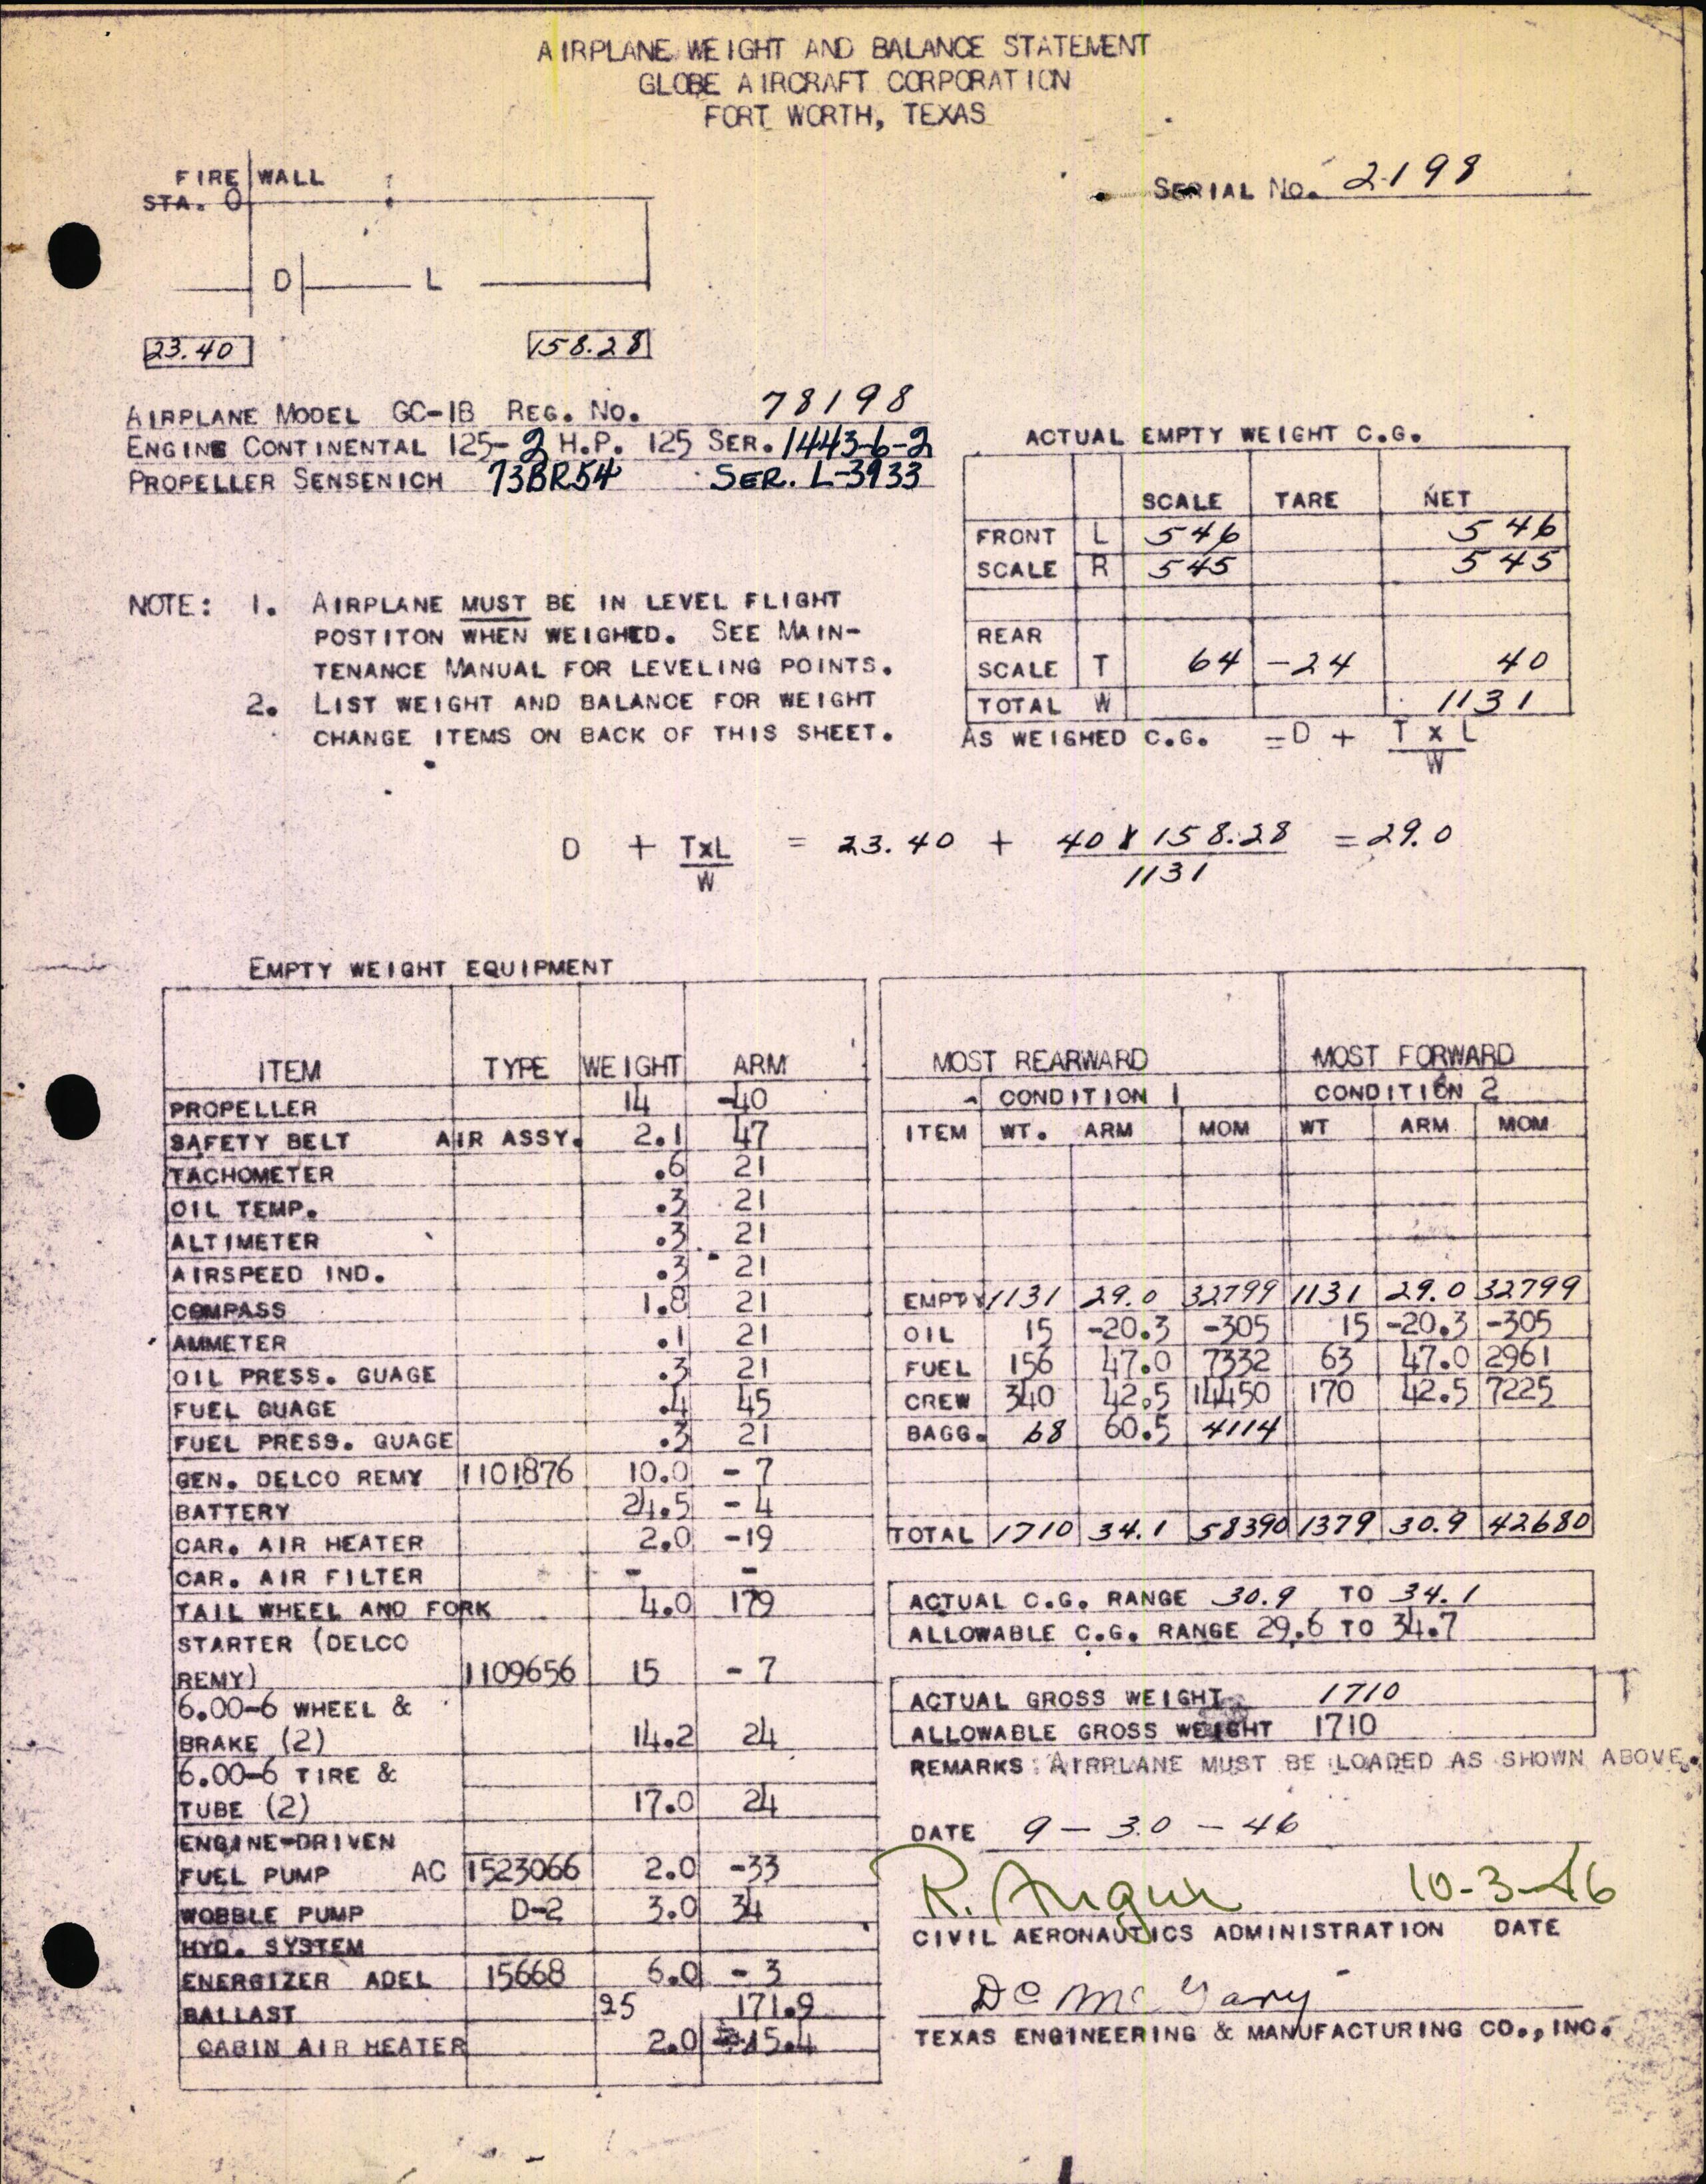 AIRPLANE WEIGHT AND BALANCE STATEMENT
GLOBE AIRCRAFT CORPORATION
FORT WORTH, TEXAS
FIRE WALL
STA. O
SERIAL NO. 2198
D L
23.40 158.28
AIRPLANE MODEL GC-1B REG. NO. 78198
ENGINE CONTINENTAL 125-2 H.P. 125 SER. 1443-6-2
PROPELLER SENSENICH 73BR54 SER. L-3933
NOTE: 1. AIRPLANE MUST BE IN LEVEL FLIGHT
POSTITON WHEN WEIGHED. SEE MAIN-
TENANCE MANUAL FOR LEVELING POINTS.
2. LIST WEIGHT AND BALANCE FOR WEIGHT
CHANGE ITEMS ON BACK OF THIS SHEET.
ACTUAL EMPTY WEIGHT C.G.
SCALE TARE NET
FRONT L 546 546
SCALE R 545 545
REAR
SCALE T 64 -24 40
TOTAL W 1131
AS WEIGHED C.G. = D + T x L
W
D + TxL = 23.40 + 40 x 158.28 = 29.0
W 1131
EMPTY WEIGHT EQUIPMENT
ITEM TYPE WEIGHT ARM
PROPELLER 14 -40
SAFETY BELT AIR ASSY. 2.1 47
TACHOMETER .6 21
OIL TEMP. .3 21
ALTIMETER .3 21
AIRSPEED IND. .3 21
COMPASS 1.8 21
AMMETER .1 21
OIL PRESS. GUAGE .3 21
FUEL GUAGE .4 45
FUEL PRESS. GUAGE .3 21
GEN. DELCO REMY 1101876 10.0 - 7
BATTERY 24.5 - 4
CAR. AIR HEATER 2.0 -19
CAR. AIR FILTER - -
TAIL WHEEL AND FORK 4.0 179
STARTER (DELCO
REMY) 1109656 15 - 7
6.00-6 WHEEL &
BRAKE (2) 14.2 24
6.00-6 TIRE &
TUBE (2) 17.0 24
ENGINE-DRIVEN
FUEL PUMP AC 1523066 2.0 -33
WOBBLE PUMP D-2 3.0 34
HYD. SYSTEM
ENERGIZER ADEL 15668 6.0 - 3
BALLAST 25 171.9
CABIN AIR HEATER 2.0 15.4
MOST REARWARD MOST FORWARD
CONDITION 1 CONDITION 2
ITEM WT. ARM MOM WT ARM MOM
EMPTY 1131 29.0 32799 1131 29.0 32799
OIL 15 -20.3 -305 15 -20.3 -305
FUEL 156 47.0 7332 63 47.0 2961
CREW 340 42.5 14450 170 42.5 7225
BAGG. 68 60.5 4114
TOTAL 1710 34.1 58390 1379 30.9 42680
ACTUAL C.G. RANGE 30.9 TO 34.1
ALLOWABLE C.G. RANGE 29.6 TO 34.7
ACTUAL GROSS WEIGHT 1710
ALLOWABLE GROSS WEIGHT 1710
REMARKS: AIRRLANE MUST BE LOADED AS SHOWN ABOVE.
DATE 9-30-46
R. Angur 10-3-46
CIVIL AERONAUTICS ADMINISTRATION DATE
TEXAS ENGINEERING & MANUFACTURING CO., INC.